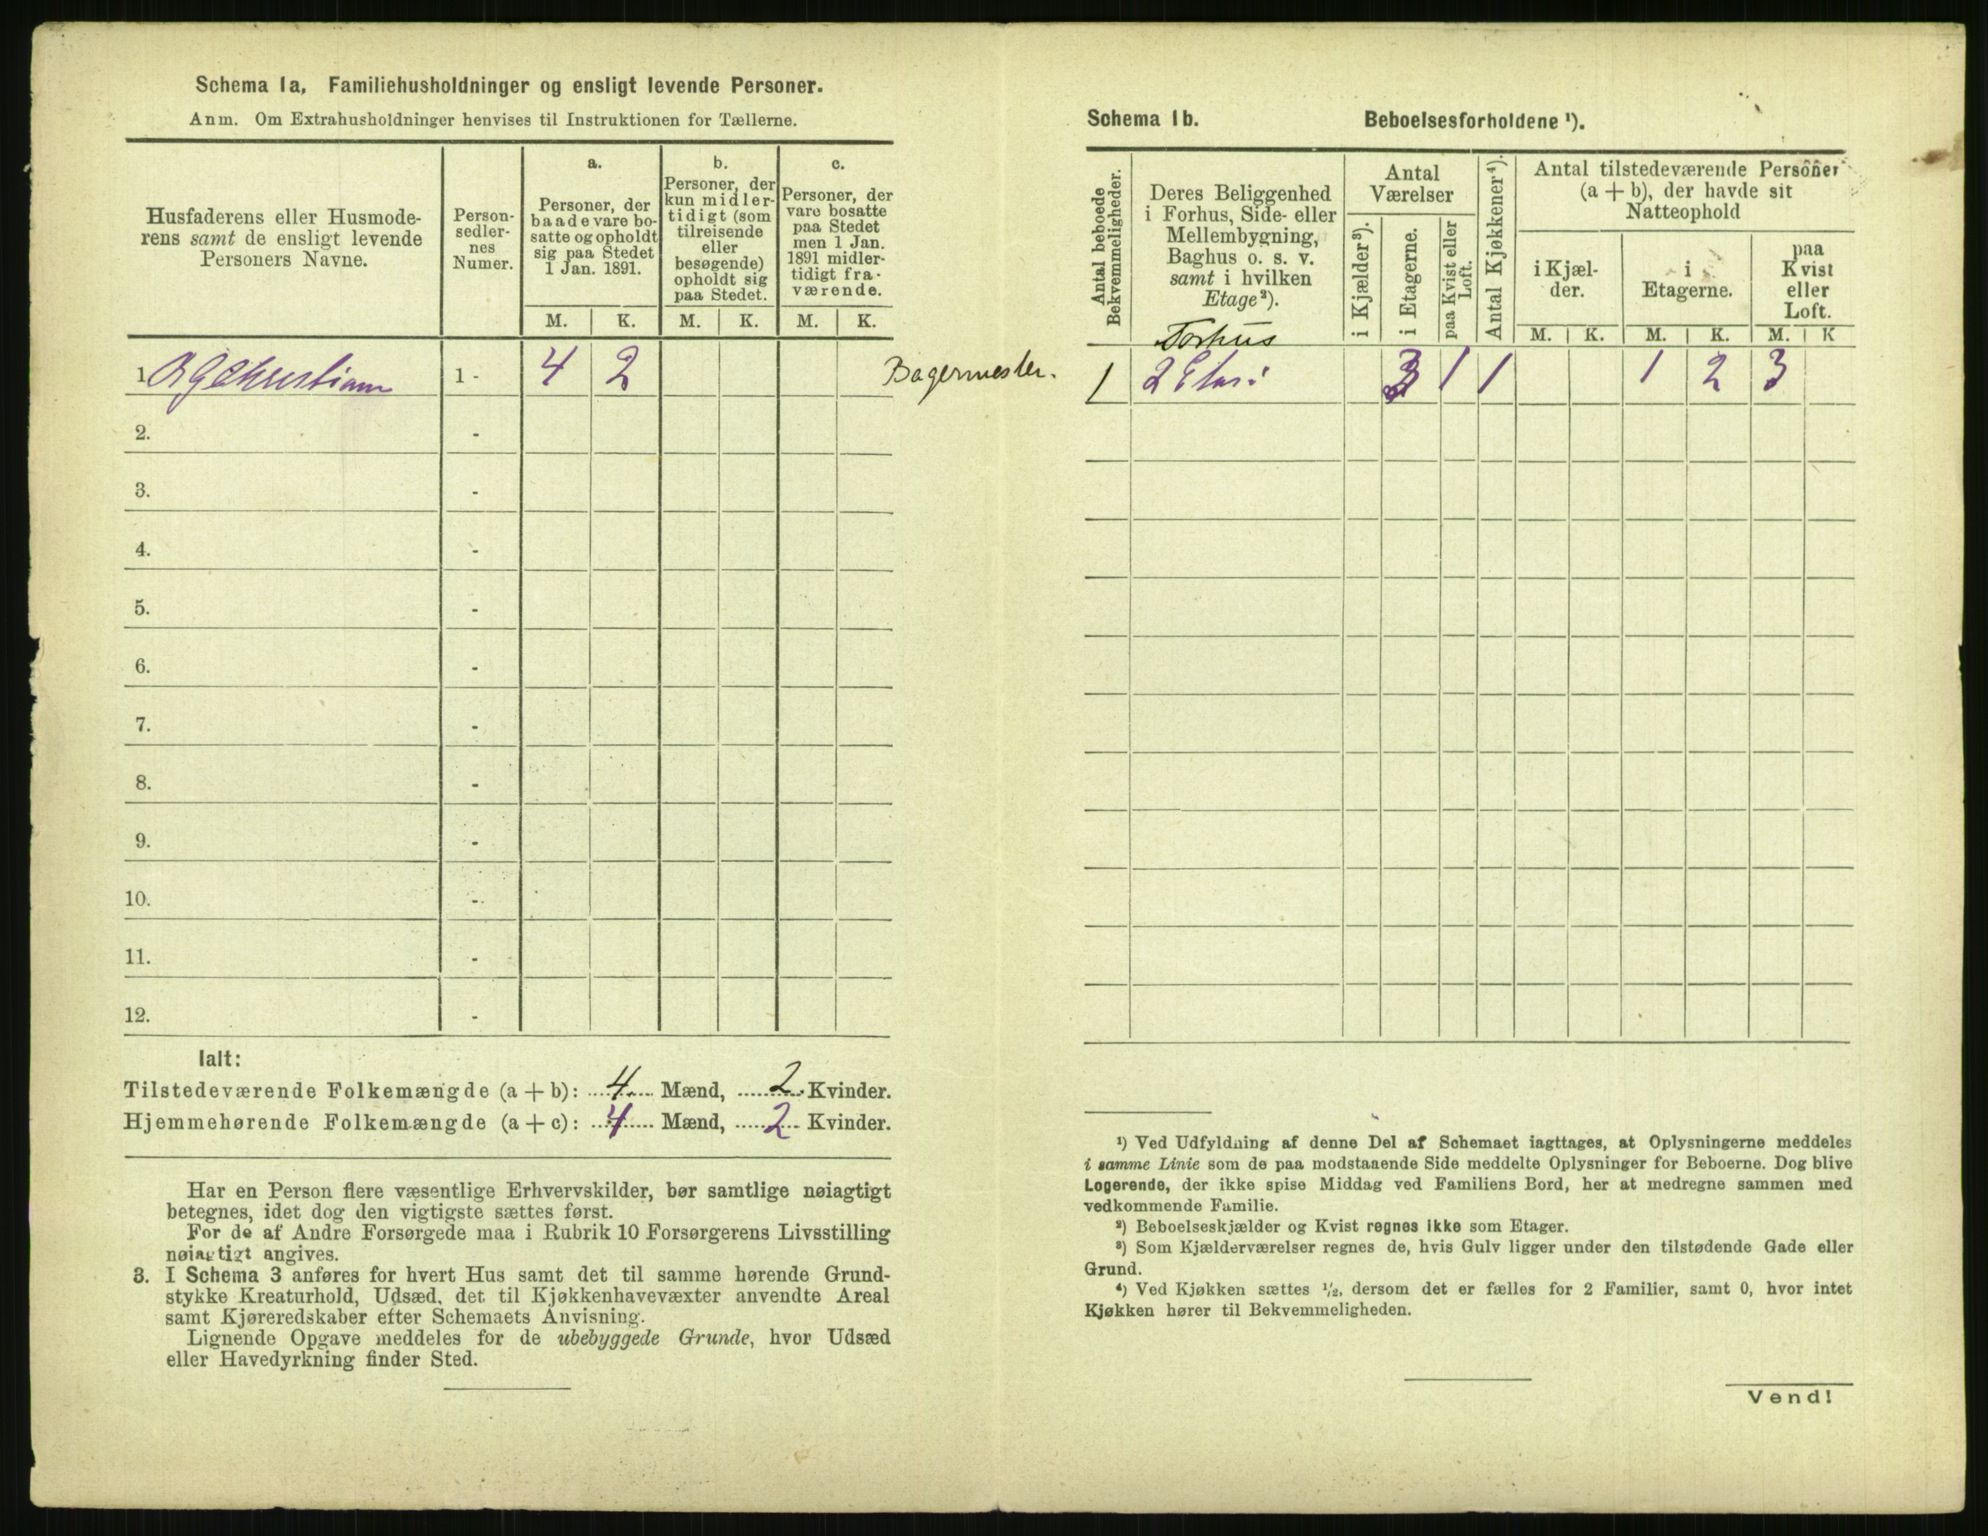 Schema 1a, Familiehusholdninger og ensligt levende Personer.
Anm. Om Extrahusholdninger henvises til Instruktionen for Tællerne.
Husfaderens eller Husmode-
rens samt de ensligt levende
Personers Navne.
Person-
sedler-
nes
Numer.
a.
Personer, der
baade vare bo-
satte og opholdt
sig paa Stedet
1 Jan. 1891.
b.
Personer, der
kun midler-
tidigt (som
tilreisende
eller
besøgende)
opholdt sig
paa Stedet.
c.
Personer, der
vare bosatte
paa Stedet
men 1 Jan.
1891 midler-
tidigt fra-
værende.
M. K. M. K. M. K.
1 Christian 1 - 4 2 Bagermester.
2. -
3. -
4. -
5. -
6. -
7. -
8. -
9. -
10. -
11. -
12. -
Ialt:
Tilstedeværende Folkemængde (a + b): 4 Mænd, 2 Kvinder.
Hjemmehørende Folkemængde (a + c): 4 Mænd, 2 Kvinder.
Har en Person flere væsentlige Erhvervskilder, bør samtlige nøiagtigt
betegnes, idet dog den vigtigste sættes først.
For de af Andre Forsørgede maa i Rubrik 10 Forsørgerens Livsstilling
nøiagtigt angives.
3. I Schema 3 anføres for hvert Hus samt det til samme hørende Grund-
stykke Kreaturhold, Udsæd, det til Kjøkkenhavevæxter anvendte Areal
samt Kjøreredskaber efter Schemaets Anvisning.
Lignende Opgave meddeles for de ubebyggede Grunde, hvor Udsæd
eller Havedyrkning finder Sted.
Schema 1b. Beboelsesforholdene ¹).
Antal beboede
Bekvemmeligheder.
Deres Beliggenhed
i Forhus, Side- eller
Mellembygning,
Baghus o. s. v.
samt i hvilken
Etage²).
Antal
Værelser
i Kjælder³).
i Etagerne.
paa Kvist eller
Loft.
Antal Kjøkkener⁴).
Antal tilstedeværende Personer
(a + b), der havde sit
Natteophold
i Kjæl-
der.
i
Etagerne.
paa
Kvist
eller
Loft.
M. K. M. K. M. K
Forhus
1 2 3 1 1 1 2 3
¹) Ved Udfyldning af denne Del af Schemaet iagttages, at Oplysningerne meddeles
i samme Linie som de paa modstaaende Side meddelte Oplysninger for Beboerne. Dog blive
Logerende, der ikke spise Middag ved Familiens Bord, her at medregne sammen med
vedkommende Familie.
²) Beboelseskjælder og Kvist regnes ikke som Etager.
³) Som Kjælderværelser regnes de, hvis Gulv ligger under den tilstødende Gade eller
Grund.
⁴) Ved Kjøkken sættes ½, dersom det er fælles for 2 Familier, samt 0, hvor intet
Kjøkken hører til Bekvemmeligheden.
Vend!